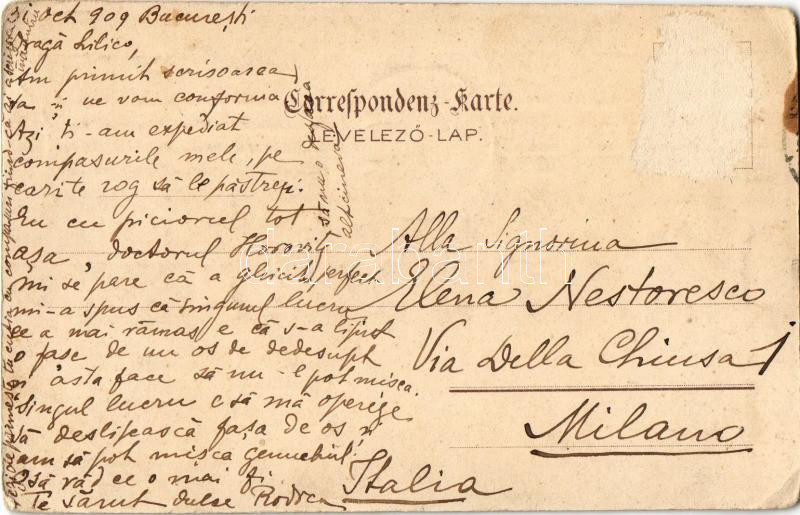 oct 909 București
Dragă Lilico,
Am primit scrisoarea
ta și ne vom conforma
Azi ți-am expediat
compasurile mele, pe
cari te rog să le păstrezi.
Eu cu piciorul tot
așa, doctorul
mi se pare că a ghicit perfect
mi-a spus că singurul lucru
ce a mai rămas e că s-a lipit
o fașe de un os de dedesupt
și asta face să nu-l pot mișca.
singul lucru e să mă opereze
să deslipească fașa de os și
am să pot mișca genuchiul!
O să văd ce o mai fi.
Te sărut dulce Rodica
Correspondenz-Karte.
LEVELEZŐ-LAP.
Alla Signorina
Elena Nestoresco
Via Della Chiusa 1
Milano
Italia
darabanth